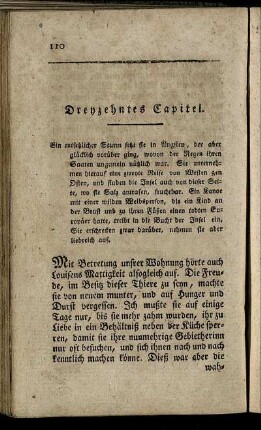 110
Dreyzehntes Capitel.
Ein entsetzlicher Sturm setzt sie in Ängsten, der aber
glücklich vorüber ging, wovon der Regen ihren
Saaten ungemein nützlich war. Sie unterneh-
men hierauf eine zweyte Reise von Westen gen
Osten, und finden die Insel auch von dieser Sei-
te, wo sie Salz antrafen, fruchtbar. Ein Kanoe
mit einer wilden Weibsperson, die ein Kind an
der Brust und zu ihren Füßen einen todten Sur-
hatte, treibt in die Bucht der Insel ein.
Sie erschrecken zwar darüber, nehmen sie aber
liebreich auf.
Mit Betretung unsrer Wohnung hörte auch
Louisens Mattigkeit alsogleich auf. Die Freu-
de, im Besitz dieser Thiere zu seyn, machte
sie von neuem munter, und auf Hunger und
Durst vergessen. Ich mußte sie auf einige
Tage nur, bis sie mehr zahm wurden, ihr zu
Liebe in ein Behältniß neben der Küche sper-
ren, damit sie ihre nunmehrige Gebietherinn
nur oft besuchen, und sich ihnen nach und nach
kenntlich machen könne. Dieß war aber die
wah-